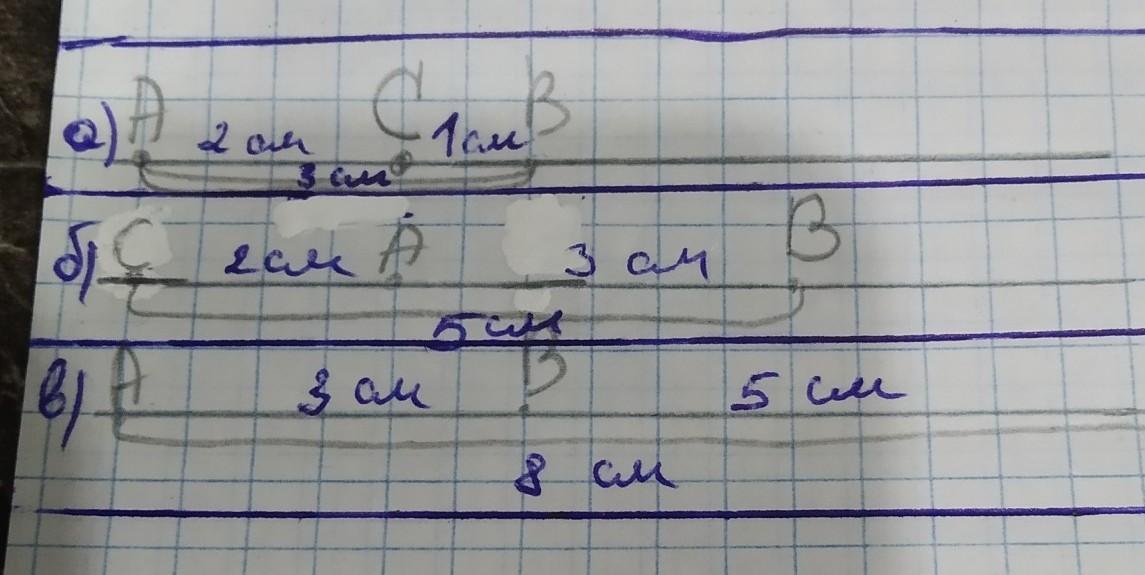 а) A 2 см C 1 см B
3 см
б) C 2 см A 3 см B
5 см
в) A 3 см B 5 см
8 см